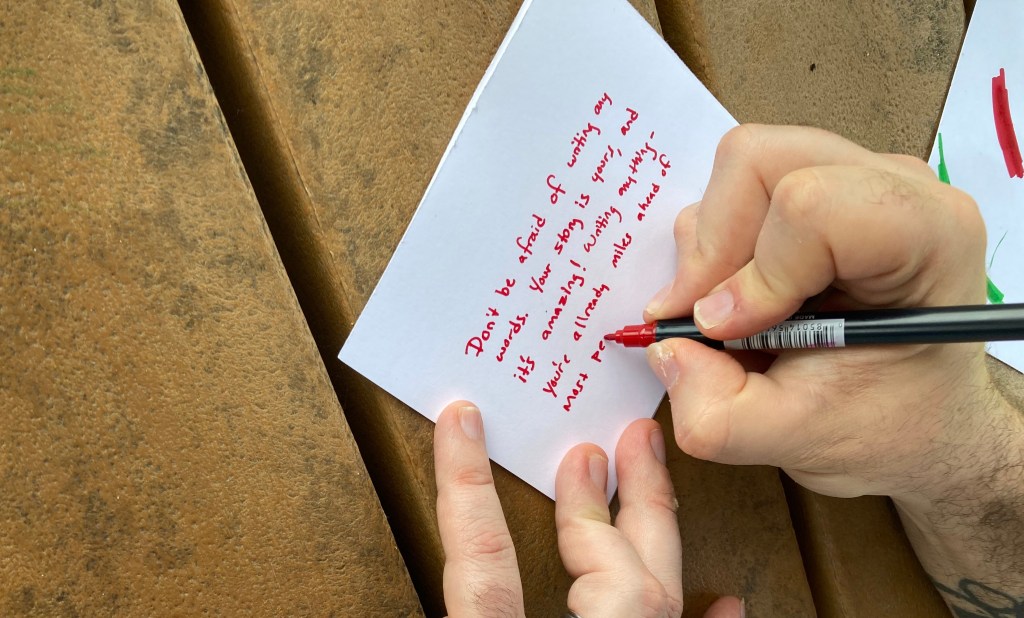 Don't be afraid of writing any
words. Your story is yours, and
it's amazing! Writing anything -
you're allready miles ahead of
Most pe